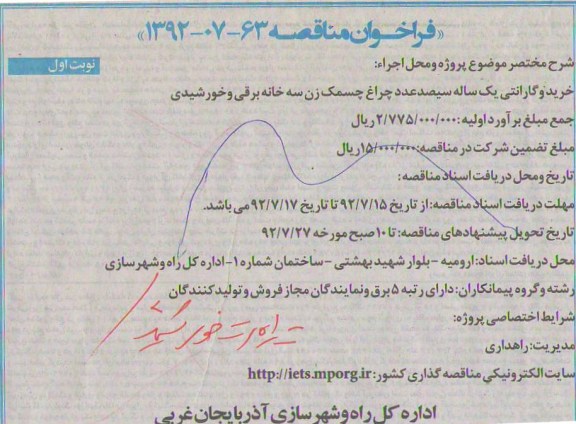 «فراخوان مناقصه ۶۳-۰۷-۱۳۹۲»
نوبت اول
شرح مختصر موضوع پروژه و محل اجراء:
خرید و گارانتی یک ساله سیصد عدد چراغ چسمک زن سه خانه برقی و خورشیدی
جمع مبلغ برآورد اولیه: ۲/۷۷۵/۰۰۰/۰۰۰ ریال
مبلغ تضمین شرکت در مناقصه: ۱۵/۰۰۰/۰۰۰ ریال
تاریخ و محل دریافت اسناد مناقصه:
مهلت دریافت اسناد مناقصه: از تاریخ ۹۲/۷/۱۵ تا تاریخ ۹۲/۷/۱۷ می باشد.
تاریخ تحویل پیشنهادهای مناقصه: تا ۱۰ صبح مورخه ۹۲/۷/۲۷
محل دریافت اسناد: ارومیه - بلوار شهید بهشتی - ساختمان شماره ۱- اداره کل راه و شهرسازی
رشته و گروه پیمانکاران: دارای رتبه ۵ برق و نمایندگان مجاز فروش و تولید کنندگان
شرایط اختصاصی پروژه:
مدیریت: راهداری
سایت الکترونیکی مناقصه گذاری کشور: http://iets.mporg.ir
اداره کل راه و شهرسازی آذربایجان غربی